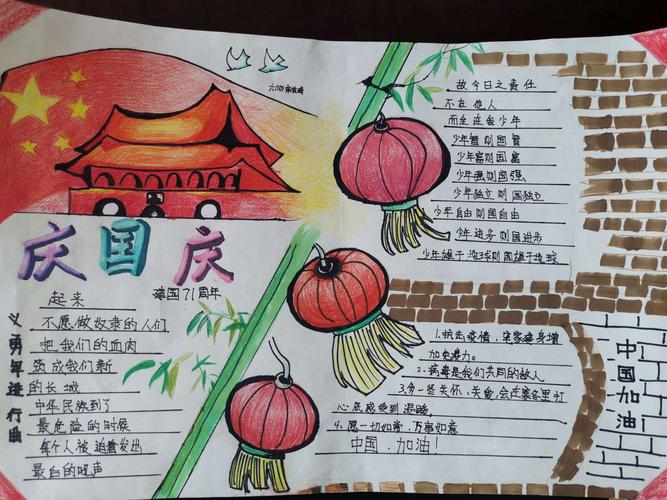 庆国庆
建国71周年
义勇军进行曲
起来
不愿做奴隶的人们
把我们的血肉
筑成我们新
的长城
中华民族到了
最危险的时候
每个人被迫着发出
最后的吼声
故今日之责任
不在他人
而全在我少年
少年智则国智
少年富则国富
少年强则国强
少年独立则国独立
少年自由则国自由
少年进步则国进步
少年雄于地球则国雄于地球
1.抗击疫情,宅家健身增
加免疫力。
2、病毒是我们共同的敌人
3.多一些关怀、关爱,会在寒冬里打
心底感受到温暖,
4、愿一切如意,万事如意
中国.加油!
中国加油